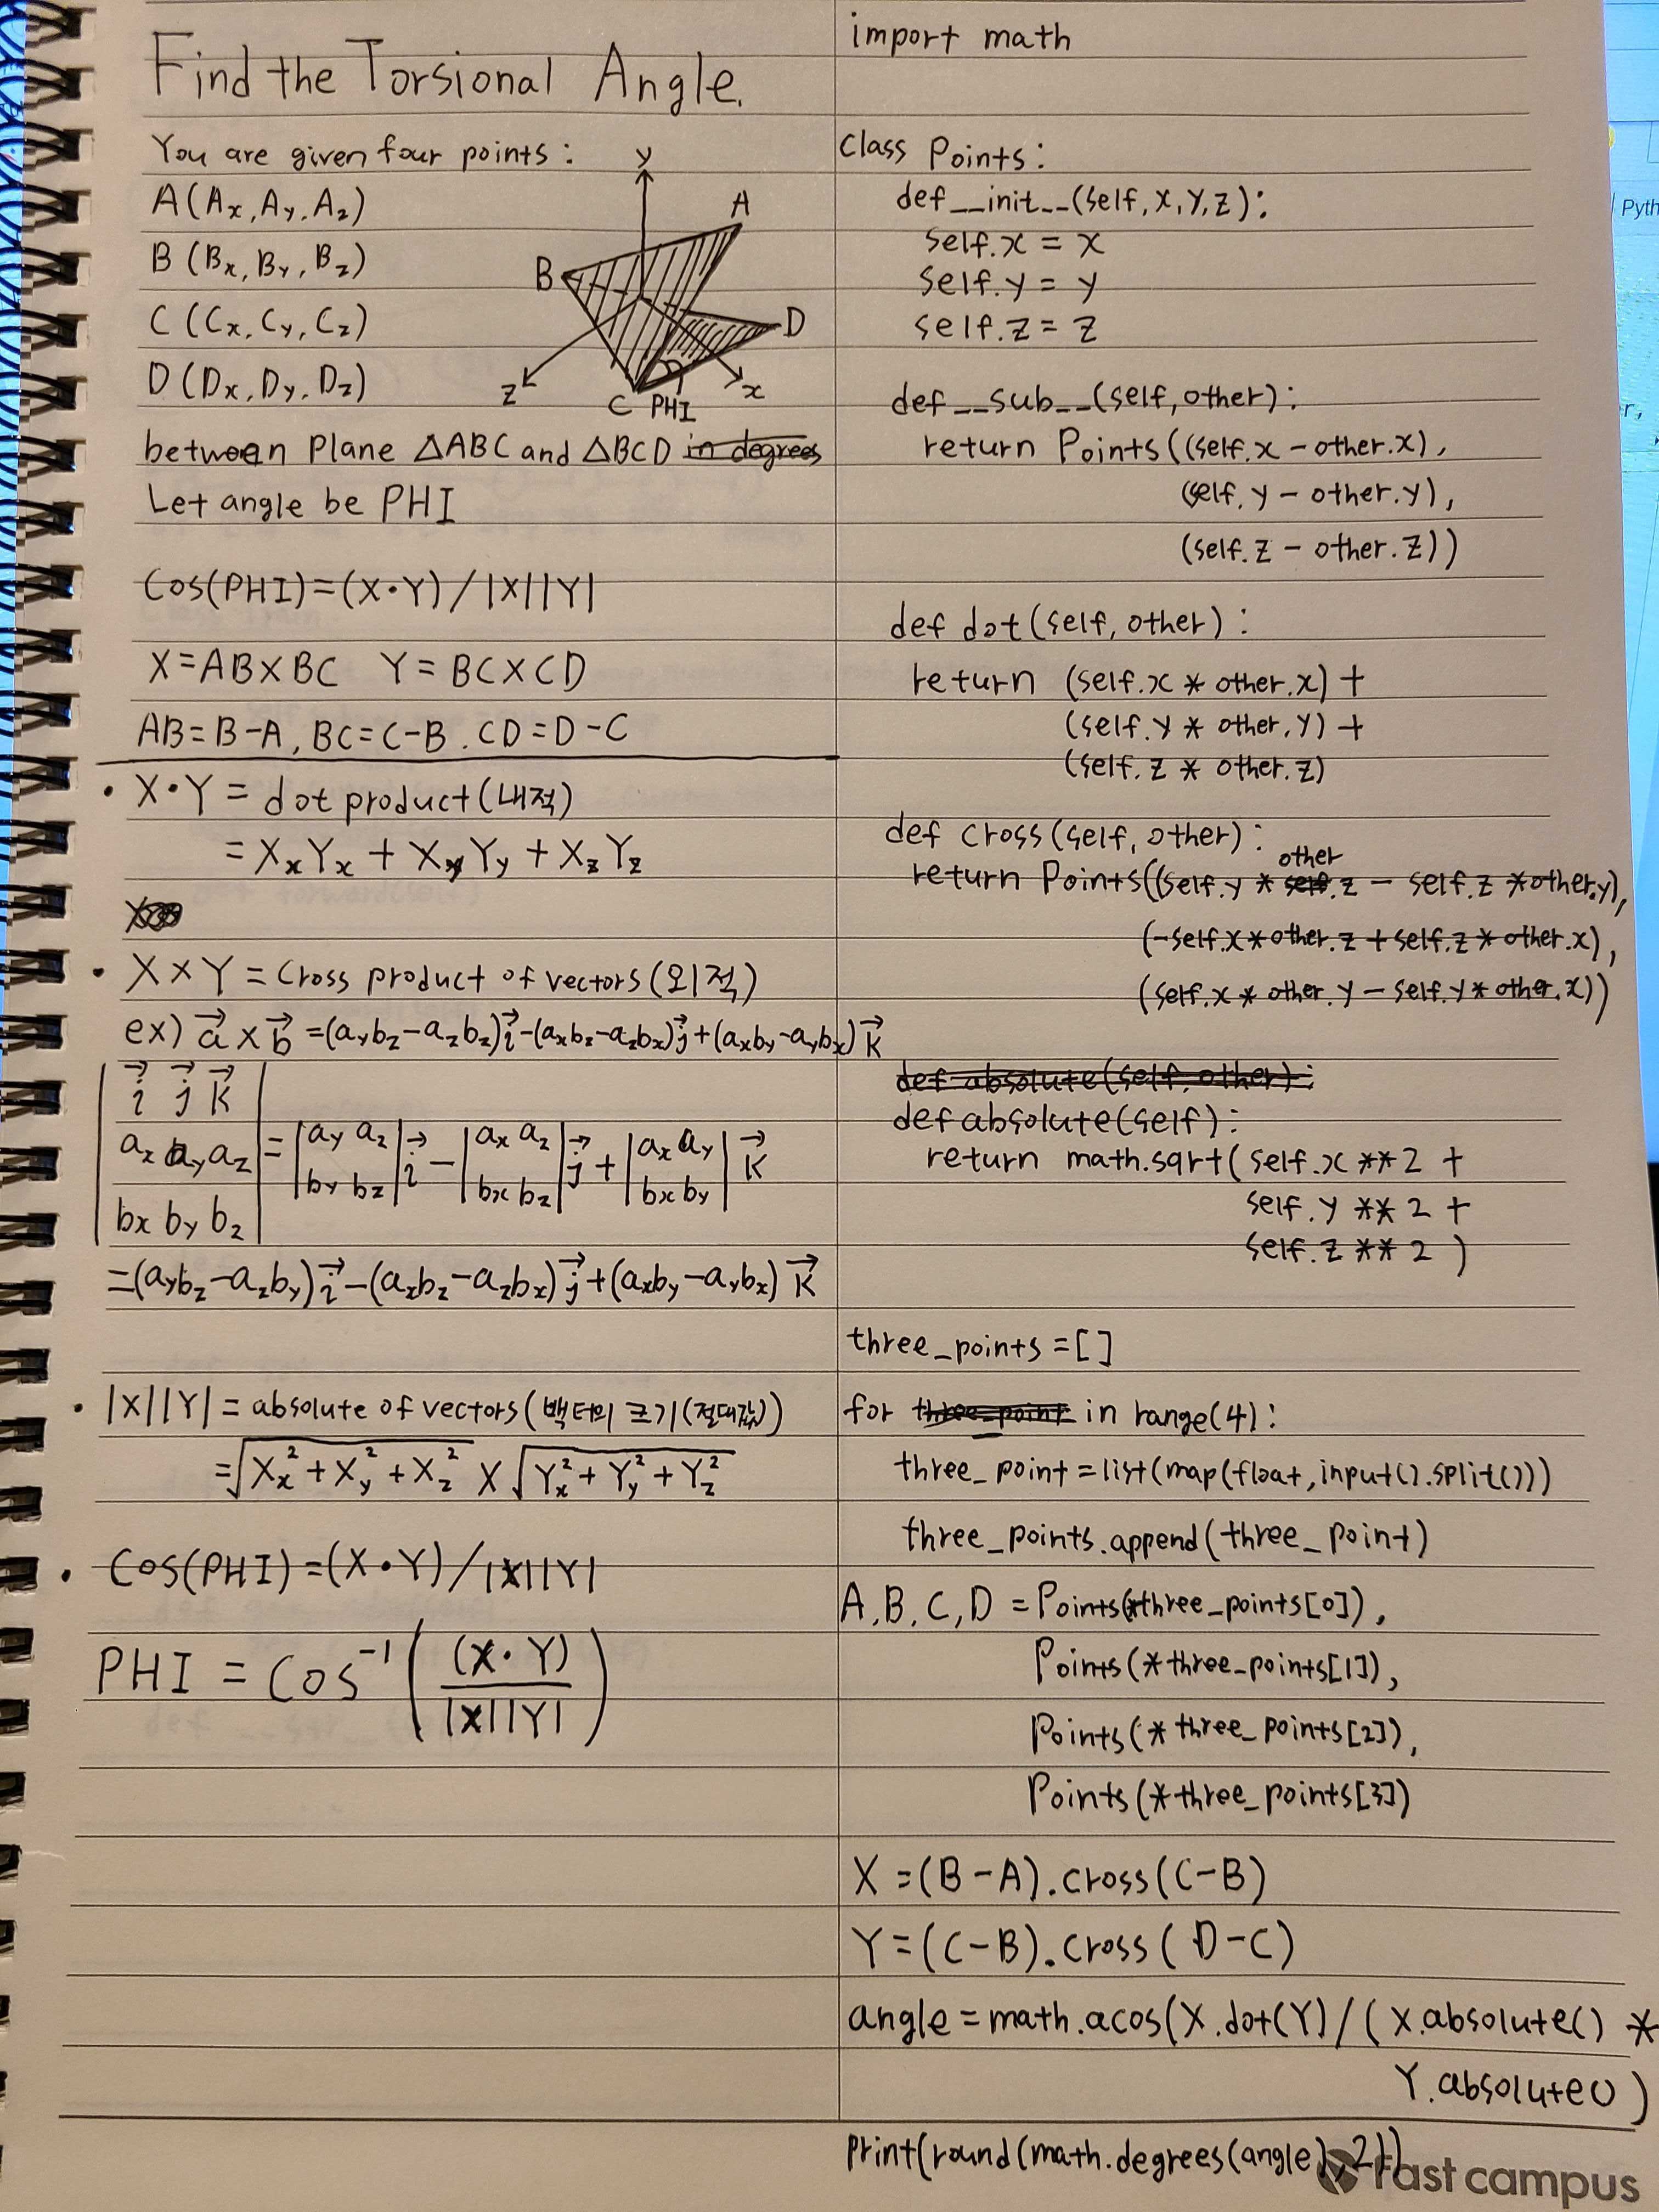 Find the Torsional Angle.
You are given four points :
A(Ax, Ay, Az)
B (Bx, By, Bz)
C (Cx, Cy, Cz)
D (Dx, Dy, Dz)
y
A
B
D
z
C PHI
x
between Plane △ABC and △BCD in degrees
Let angle be PHI
Cos(PHI)=(X·Y)/|X||Y|
X=AB×BC Y=BC×CD
AB=B-A, BC=C-B. CD=D-C
· X·Y = dot product(내적)
= XxYx + XyYy + XzYz
· X×Y = Cross product of vectors(외적)
ex) a→ × b→ =(aybz-azbz)i→-(axbz-azbx)j→+(axby-aybx)k→
| i→ j→ k→ |
| ax ay az | = |ay az| i→ - |ax az| j→ + |ax ay| k→
| bx by bz | |by bz| |bx bz| |bx by|
=(aybz-azby)i→-(axbz-azbx)j→+(axby-aybx)k→
· |X||Y| = absolute of vectors(백터의 크기(절대값))
=√Xx²+Xy²+Xz² × √Yx²+Yy²+Yz²
· Cos(PHI)=(X·Y)/|X||Y|
PHI = Cos⁻¹( (X·Y) / |X||Y| )
import math
Class Points:
def __init__(self, x, y, z):
self.x = x
self.y = y
self.z = z
def __sub__(self, other):
return Points((self.x - other.x),
(self.y - other.y),
(self.z - other.z))
def dot(self, other):
return (self.x * other.x) +
(self.y * other.y) +
(self.z * other.z)
def cross(self, other):
other
return Points((self.y * self.z - self.z * other.y),
(-self.x * other.z + self.z * other.x),
(self.x * other.y - self.y * other.x))
def absolute(self, other):
def absolute(self):
return math.sqrt(self.x ** 2 +
self.y ** 2 +
self.z ** 2 )
three_points = []
for three_point _ in range(4):
three_point = list(map(float, input().split()))
three_points.append(three_point)
A, B, C, D = Points(*three_points[0]),
Points(*three_points[1]),
Points(*three_points[2]),
Points(*three_points[3])
X = (B-A).cross(C-B)
Y = (C-B).cross(D-C)
angle = math.acos(X.dot(Y)/(X.absolute() *
Y.absolute())
print(round(math.degrees(angle),2))
fast campus
Pyth
r,